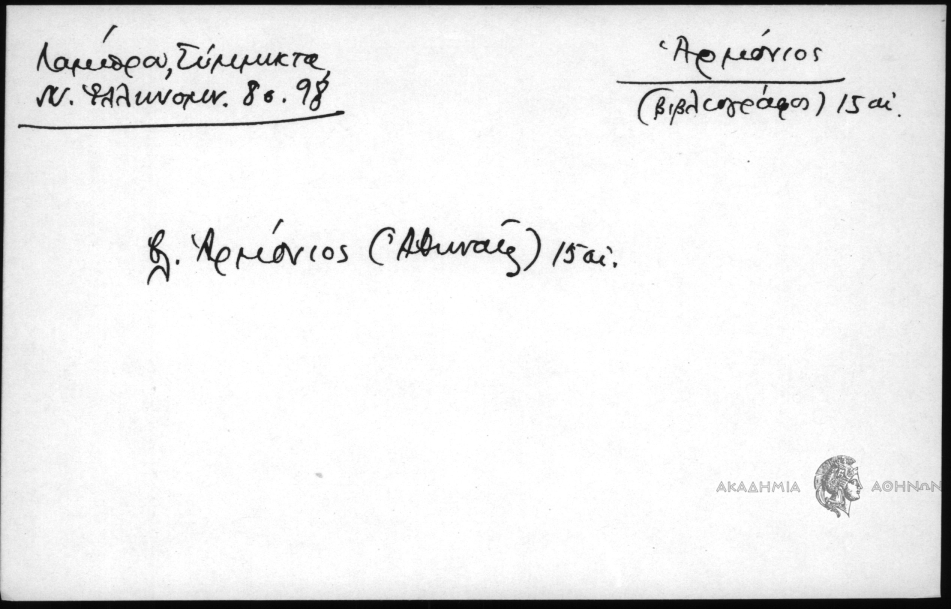 Λαμπρου, Σύμμικτα,
Ν. Ἑλληνομν. 8 σ. 98
Ἁρμόνιος
(βιβλιογράφος) 15 αἰ.
βλ. Ἁρμόνιος (Ἀθηναῖος) 15 αἰ.
ΑΚΑΔΗΜΙΑ ΑΘΗΝΩΝ